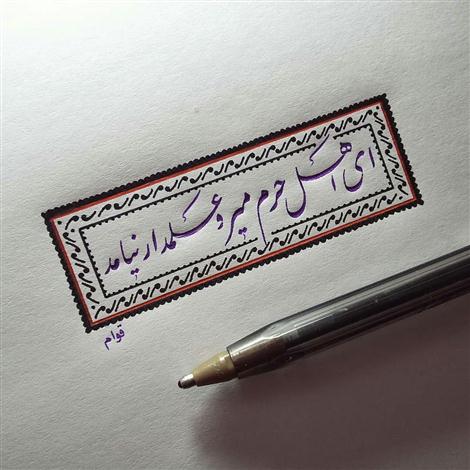 ای اهل حرم میر و علمدار نیامد
قوام